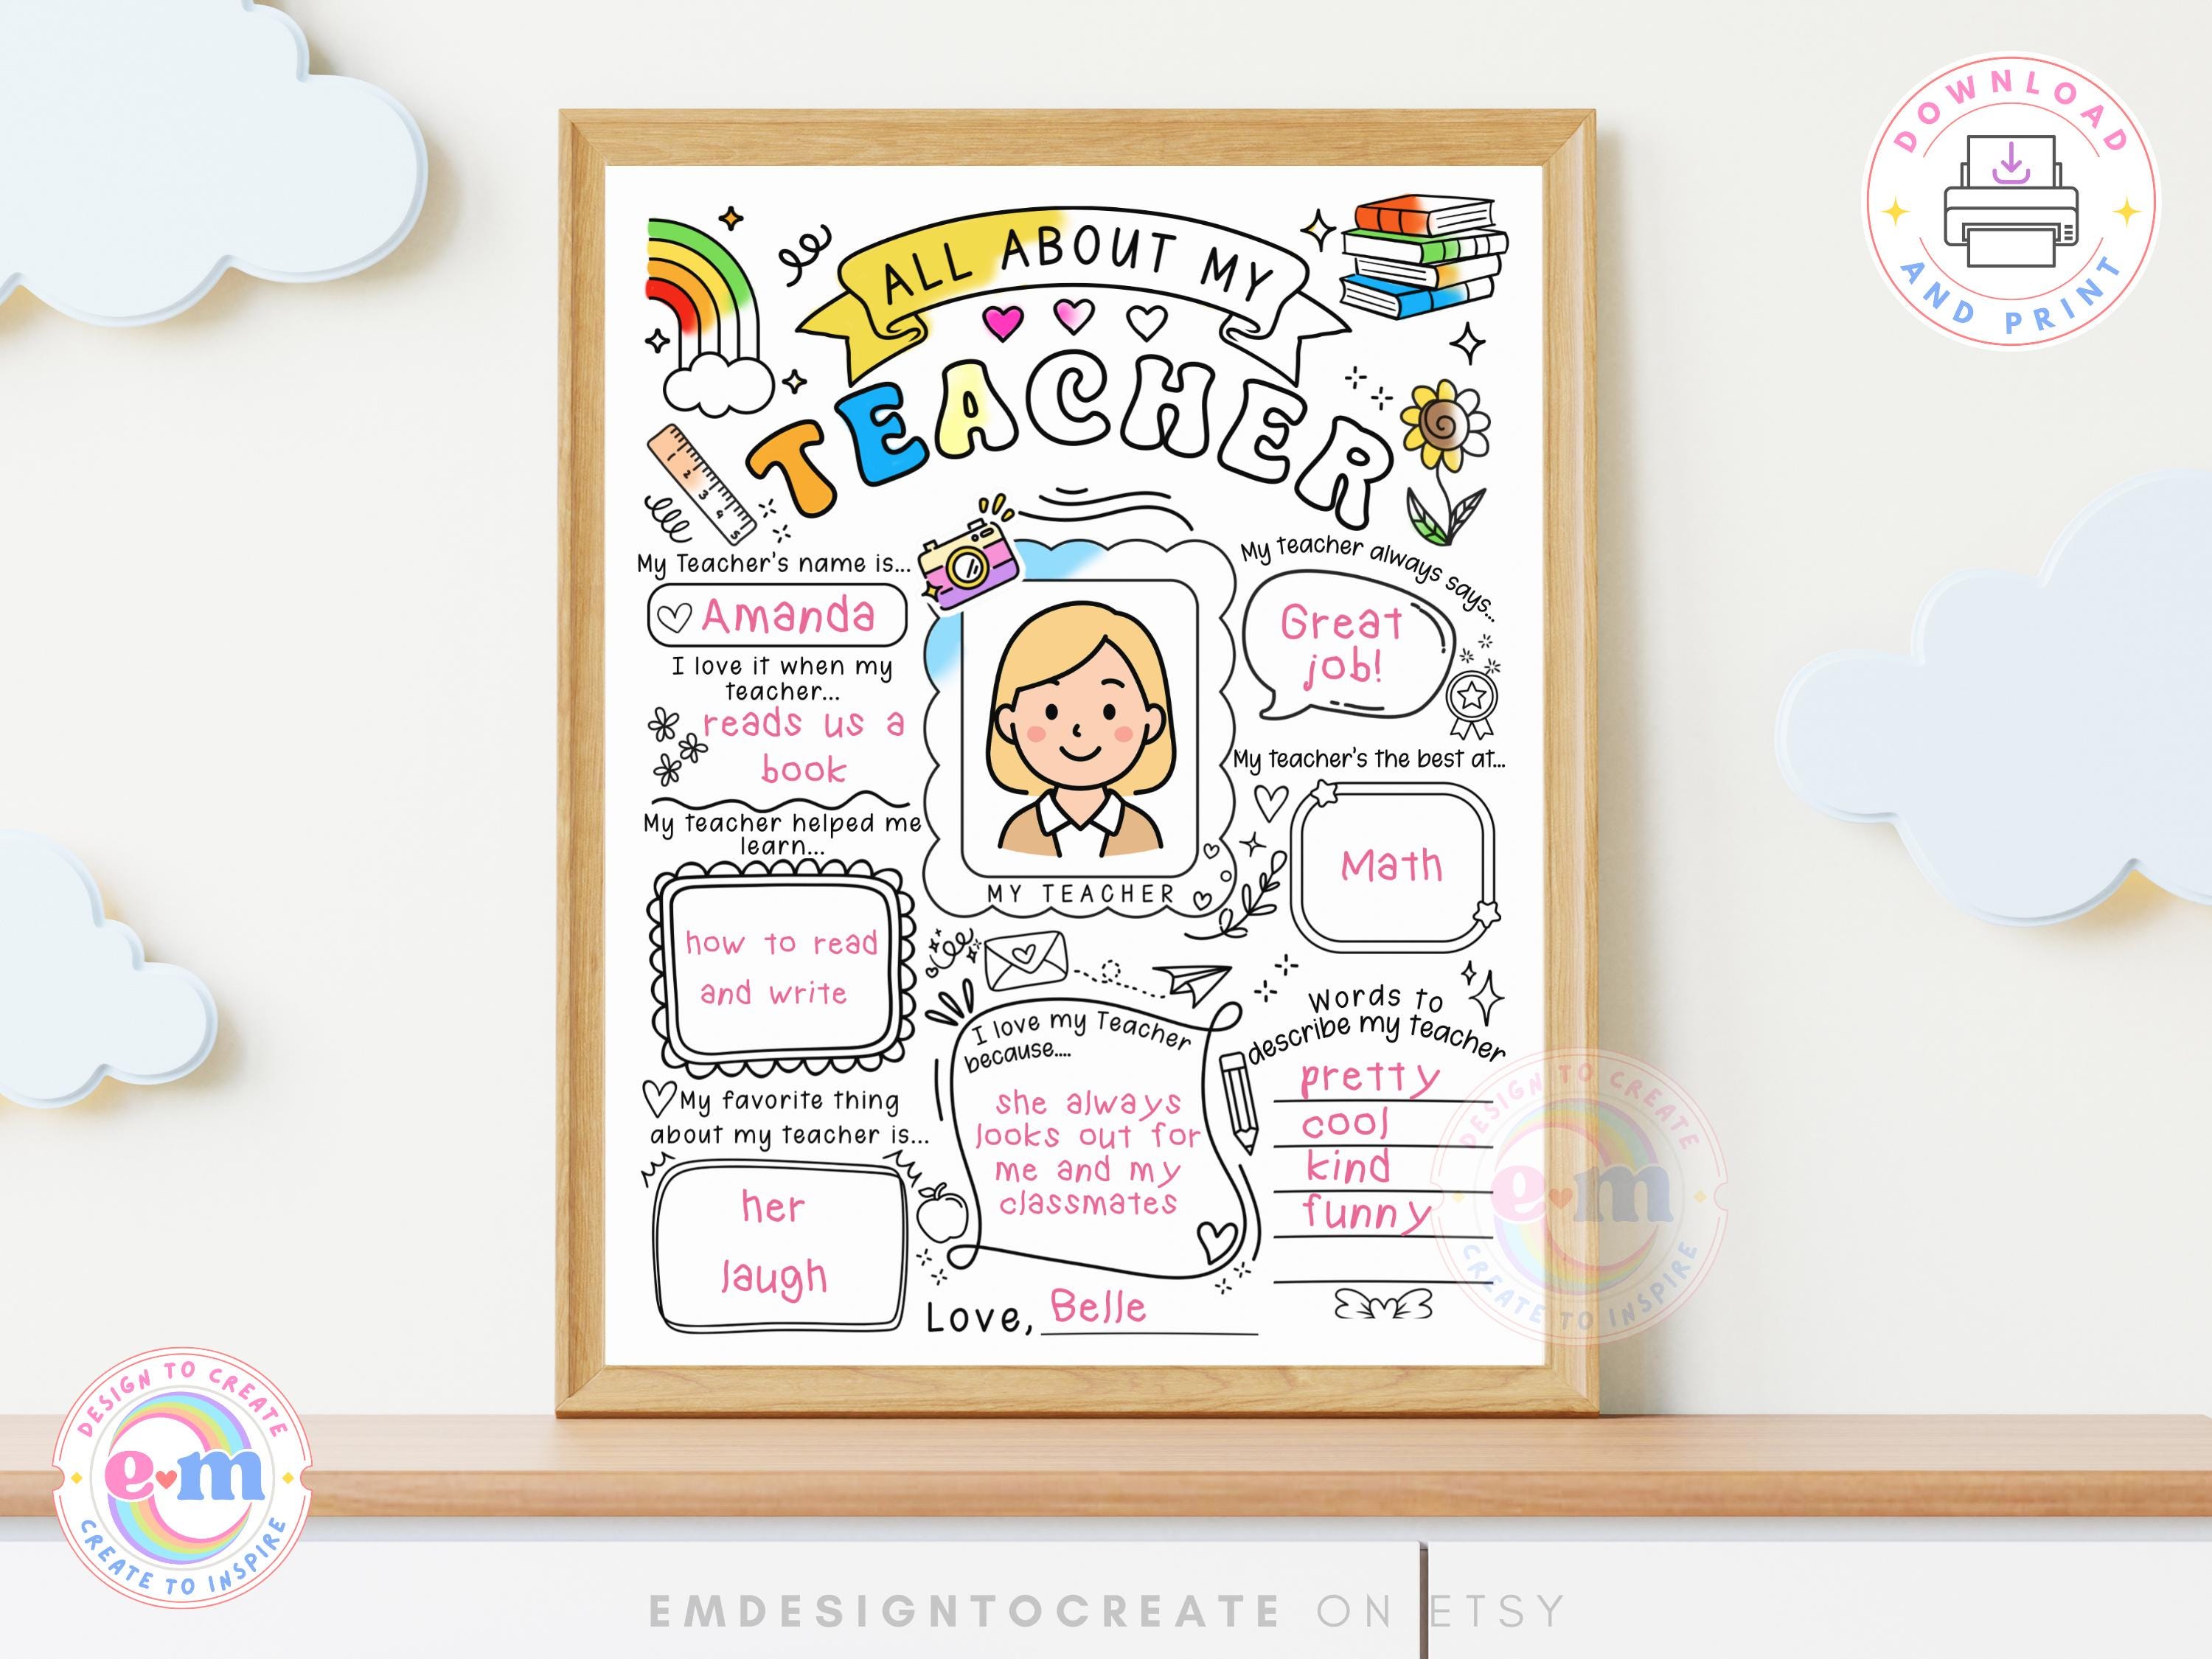 DOWNLOAD
AND PRINT
ALL ABOUT MY
TEACHER
1 2 3 4 5
My Teacher's name is...
Amanda
I love it when my
teacher...
reads us a
book
My teacher helped me
learn...
how to read
and write
My favorite thing
about my teacher is...
her
laugh
MY TEACHER
I love my Teacher
because....
she always
looks out for
me and my
classmates
Love, Belle
My teacher always says...
Great
job!
My teacher's the best at...
Math
Words to
describe my teacher
pretty
cool
kind
funny
DESIGN TO CREATE
e m
CREATE TO INSPIRE
DESIGN TO CREATE
e m
CREATE TO INSPIRE
EMDESIGNTOCREATE ON ETSY